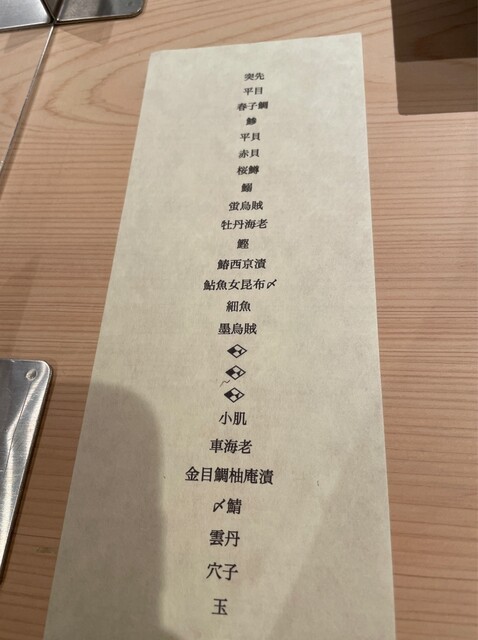 突先
平目
春子鯛
鯵
平貝
赤貝
桜鱒
鰯
蛍烏賊
牡丹海老
鰹
鰆西京漬
鮎魚女昆布〆
細魚
墨烏賊
小肌
車海老
金目鯛柚庵漬
〆鯖
雲丹
穴子
玉